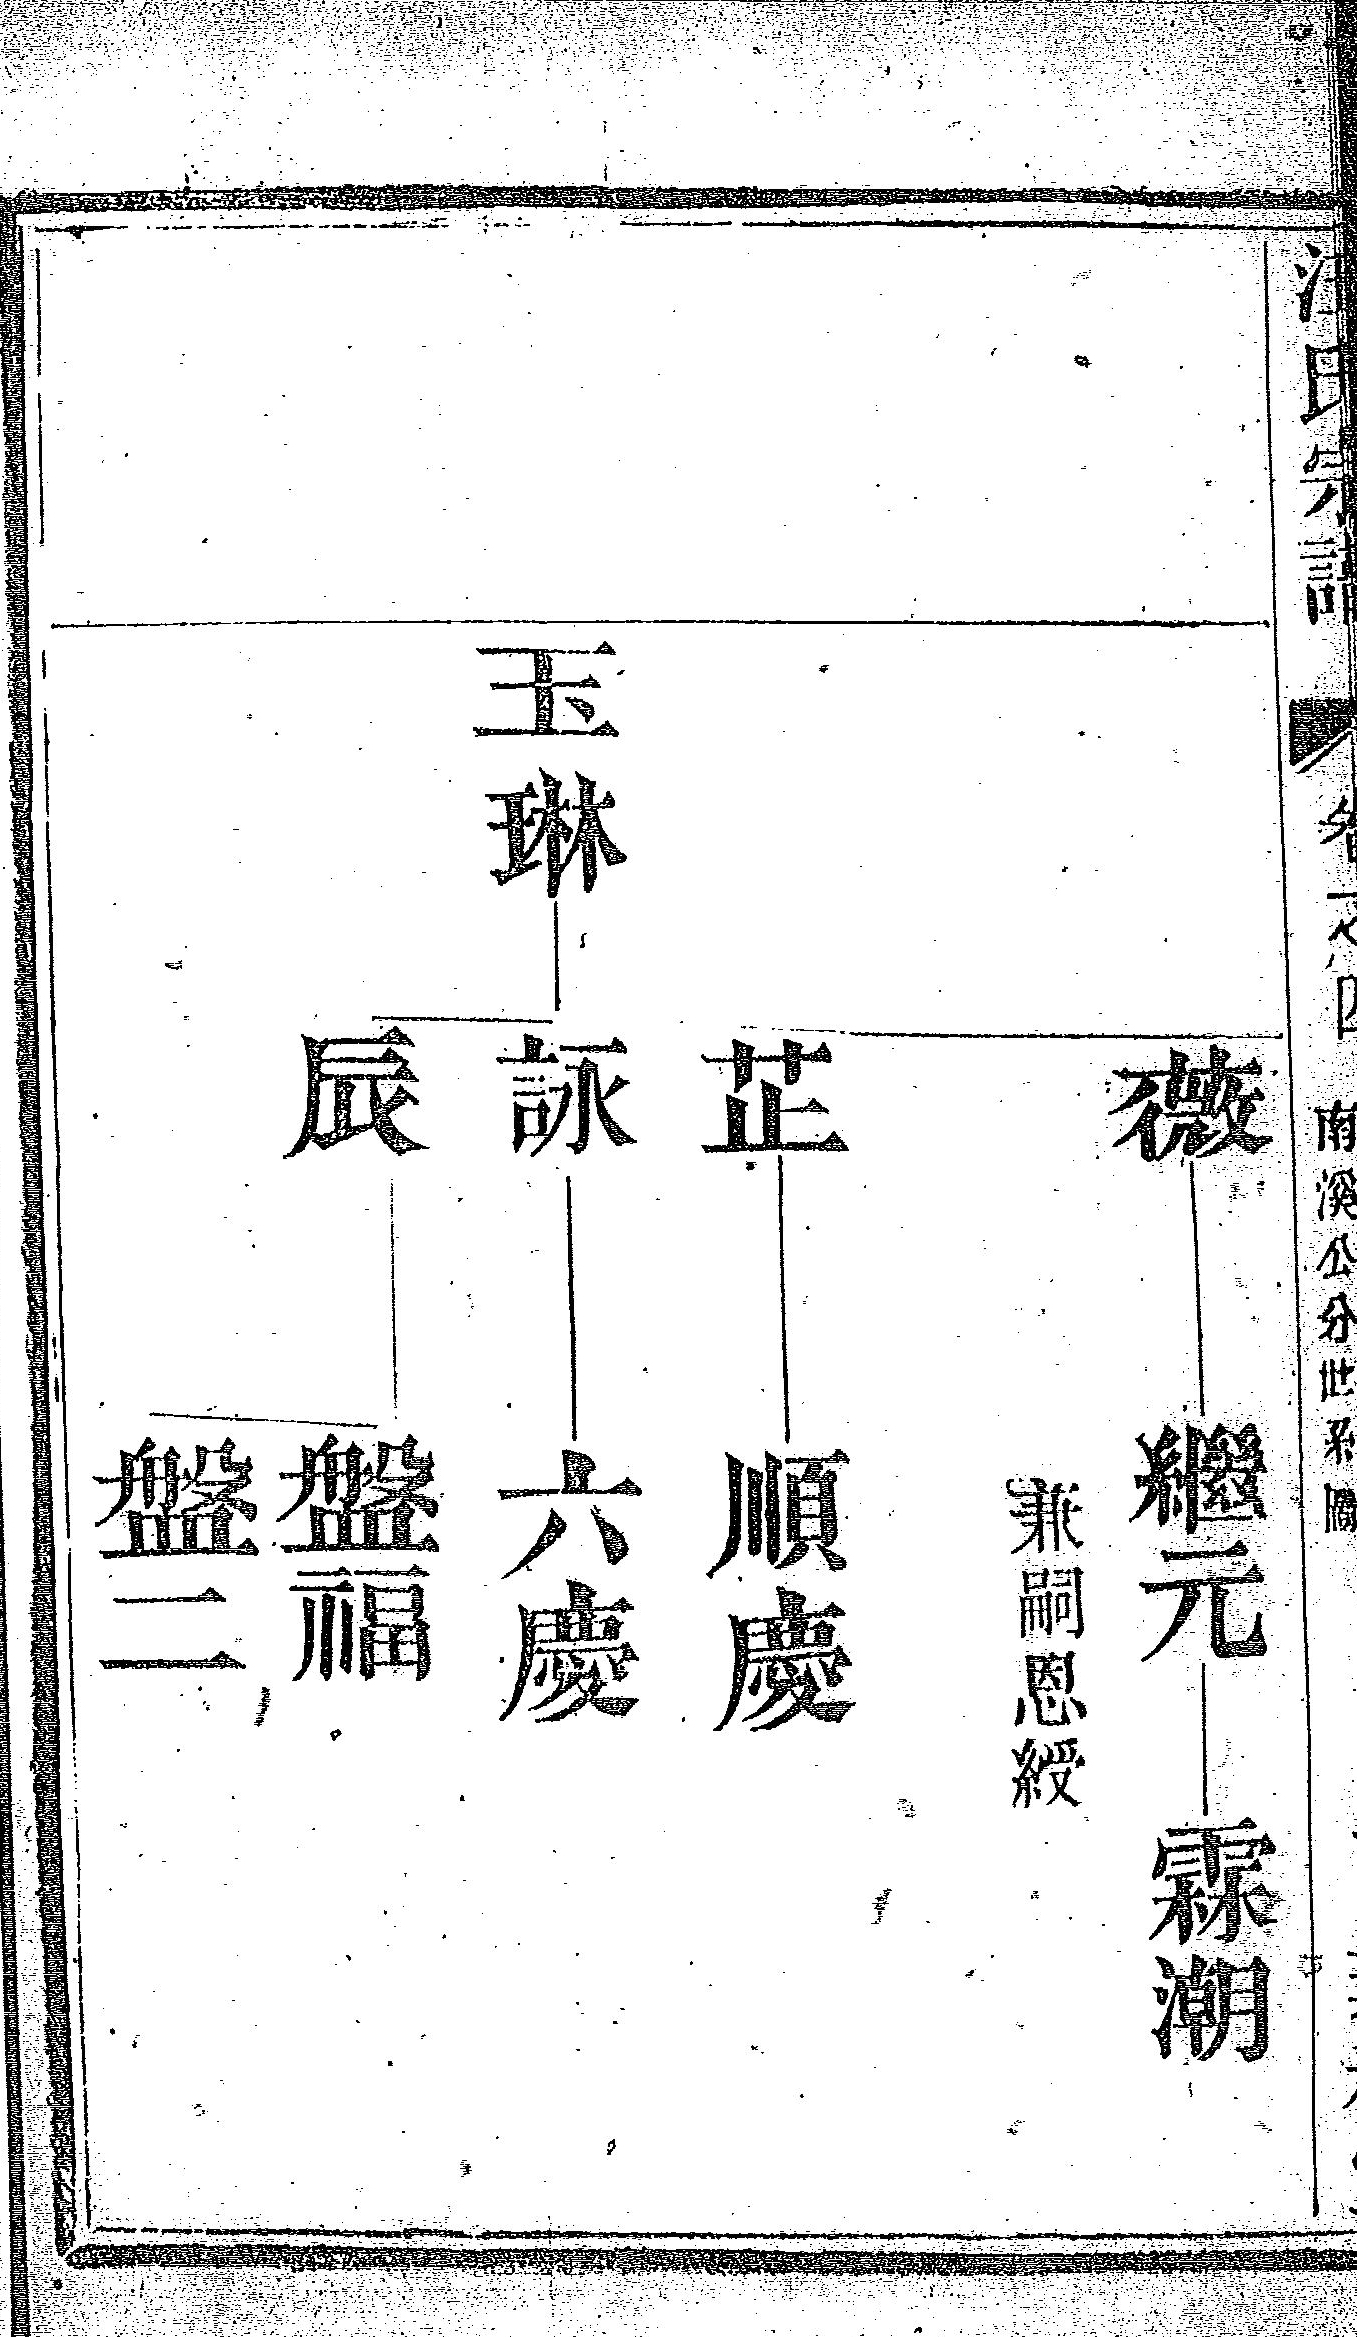 氏宗譜
卷之四
南溪公分世系圖
薇
繼元
霖潮
兼嗣恩綬
芷
順慶
玉琳
詠
六慶
辰
盤福
盤二